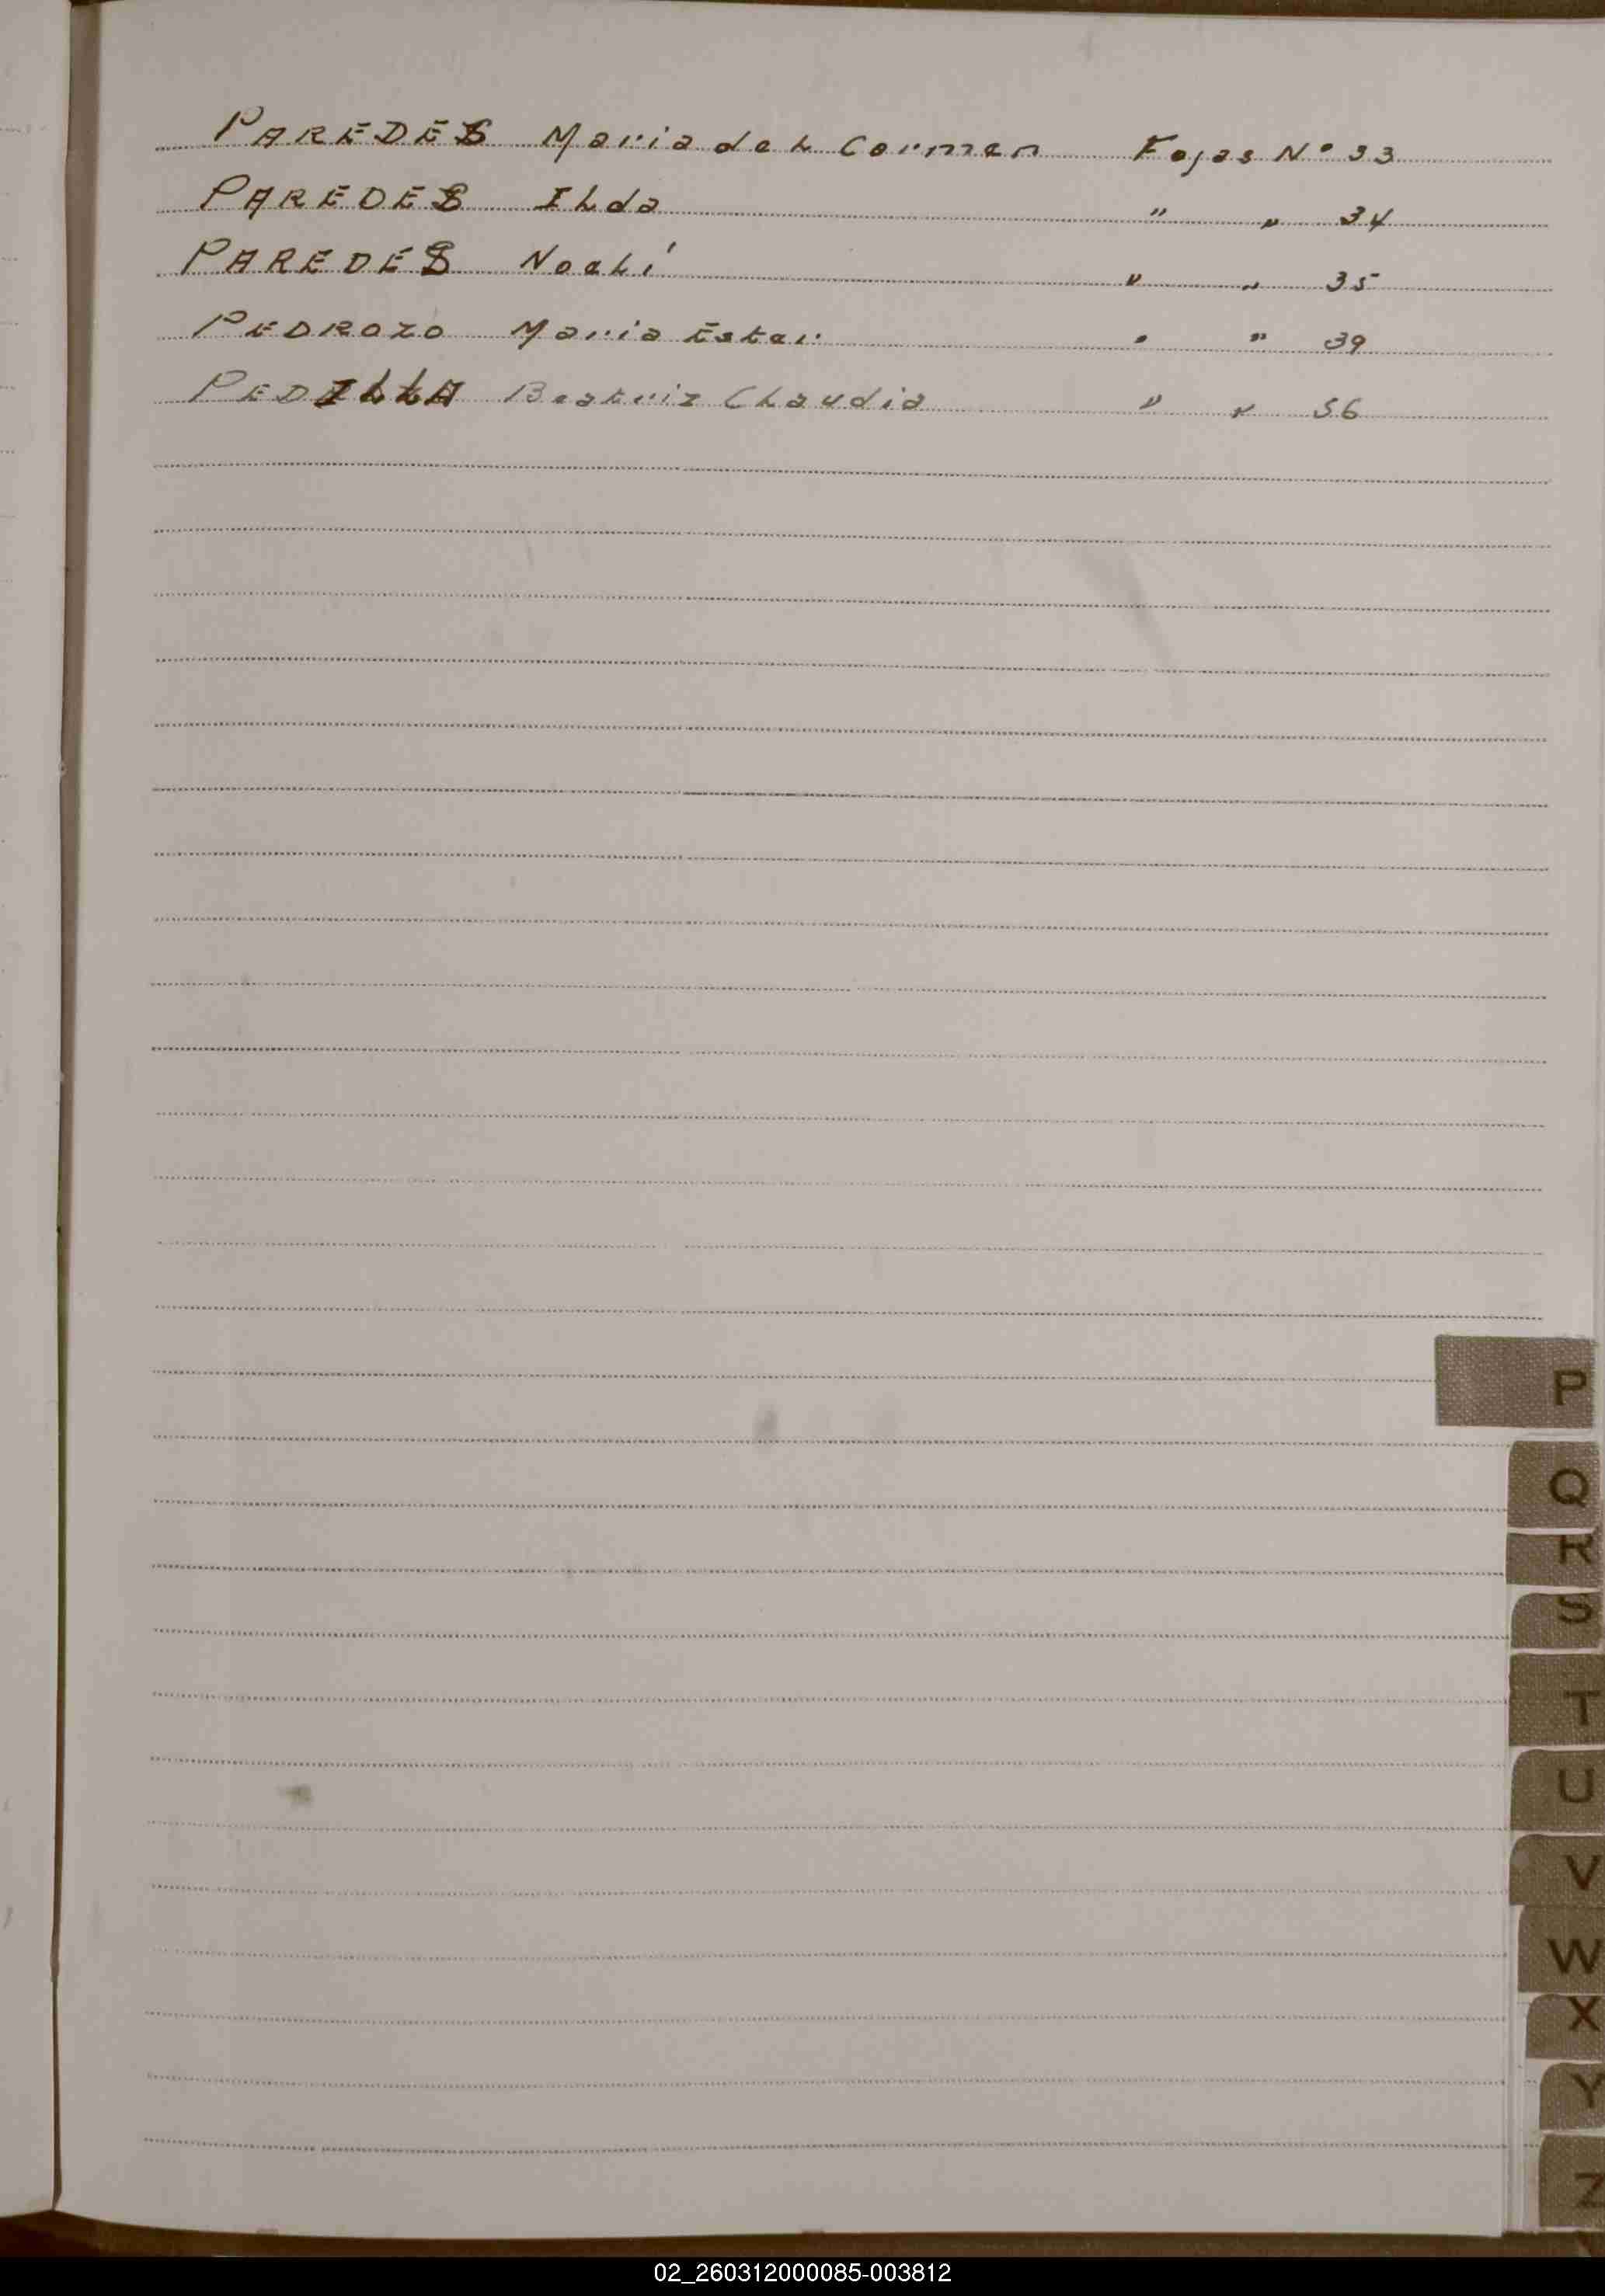 PAREDES Maria del Carmen Fojas Nº 33
PAREDES Ilda " " 34
PAREDES Noelí " " 35
PEDROZO Maria Ester " " 39
PEDILLA Beatriz Claudia " " 56
P
Q
R
S
T
U
V
W
X
Y
Z
02_260312000085-003812